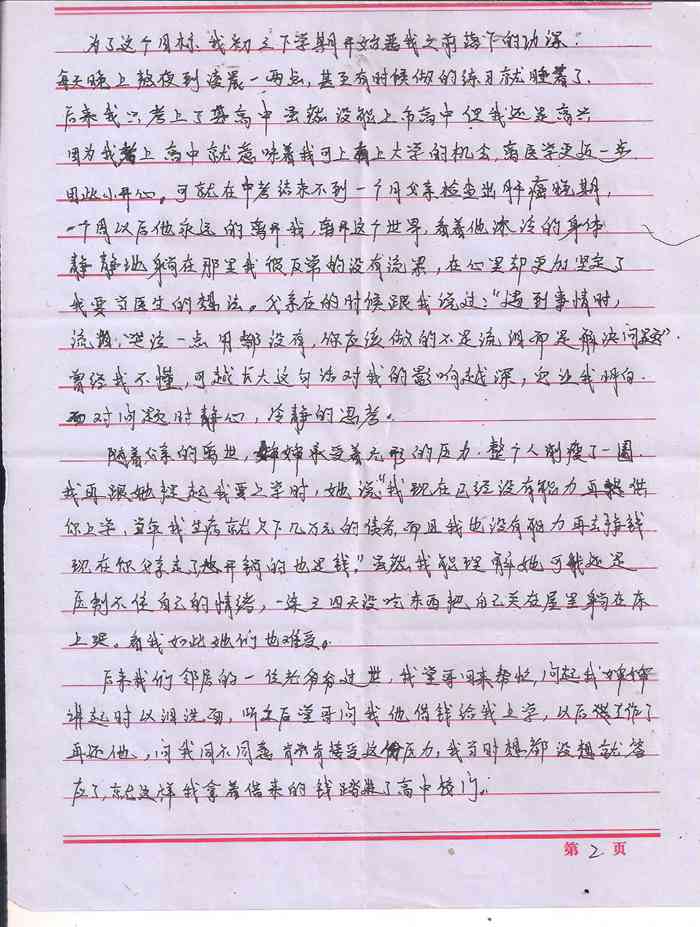 为了这个目标、我初三下学期开始恶补之前落下的功课.
每天晚上熬夜到凌晨一两点,甚至有时候做的练习就睡着了.
后来我只考上了县高中 虽然没能上市高中 但我还是高兴
因为我考上高中就意味着我可上有上大学的机会,离医学更近一步
因此小开心。可就在中考结束不到一个月父亲检查出肝癌晚期,
一个周以后他永远的离开我,离开这个世界,看着他冰冷的身体
静静地躺在那里我很反常的没有流泪,在心里却更加坚定了
我要当医生的想法。父亲在的时候跟我说过:“遇到事情时,
流泪、哭泣一点用都没有,你应该做的不是流泪而是解决问题”.
曾经我不懂,可越长大这句话对我的影响越深,它让我明白.
面对问题时静心,冷静的思考。
随着父亲的离世,婶婶承受着无形的压力.整个人削瘦了一圈.
我再跟她提起我要上学时,她说“我现在已经没有能力再提供
你上学,当年我生病就欠下几万元的债务,而且我也没有能力再去挣钱
现在你父亲走了开销的也是钱.”虽然我能理解她可我还是
压制不住自己的情绪,一连三四天没吃东西把自己关在屋里躺在床
上哭。看我如此她们也难受。
后来我们邻居的一位老爷爷过世,我堂哥回来帮忙,问起我婶婶
讲起时以泪洗面,听之后堂哥问我他借钱给我上学,以后工作了
再还他,问我同不同意肯不肯接受这份压力,我当时想都没想就答
应了,就这样我拿着借来的钱踏进了高中校门.
第 2 页